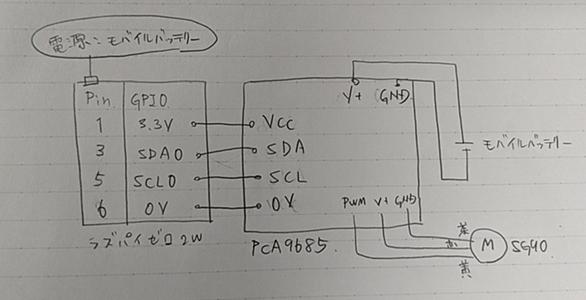 電源：モバイルバッテリー
Pin GPIO
1 3.3V VCC
3 SDA0 SDA
5 SCL0 SCL
6 0V 0V
ラズパイゼロ2W
PCA9685
V+ GND
モバイルバッテリー
PWM V+ GND
茶
赤
黄
M
SG90